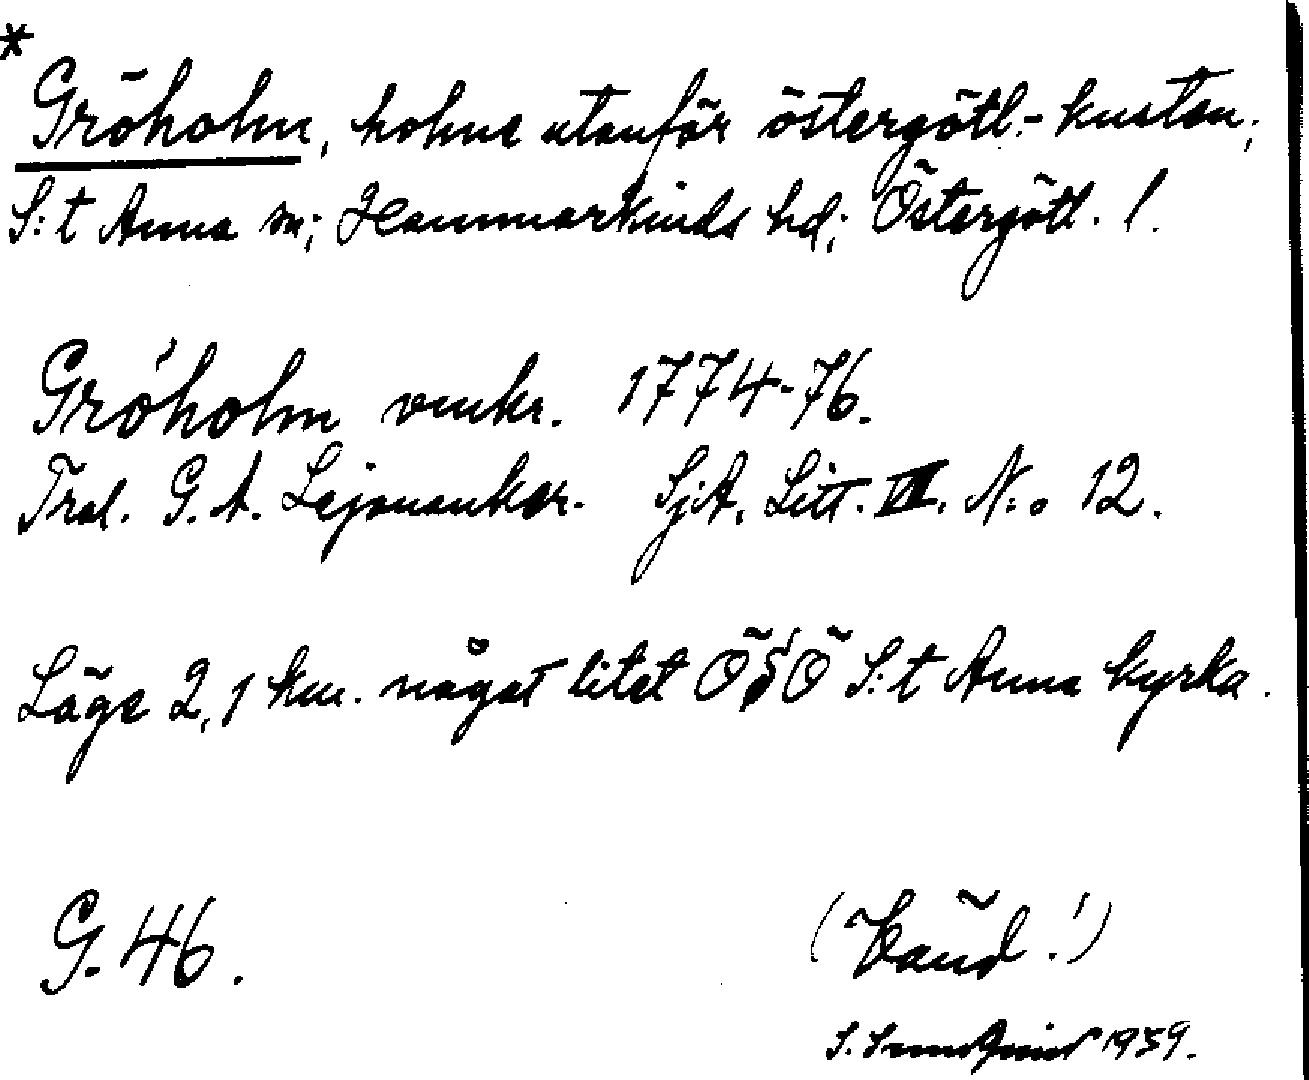 *
Gröholm, holme utanför östergötl.-kusten;
S:t Anna sn; Hammarkinds hd; Östergötl. l.
Gröholm omkr. 1774-76.
Trol. G. A. Lejonanker. SjA. Litt. VII. N:o 12.
Läge 2,1 km. något litet ÖSÖ S:t Anna kyrka.
G. 46.
(Vänd!)
S. 1939.